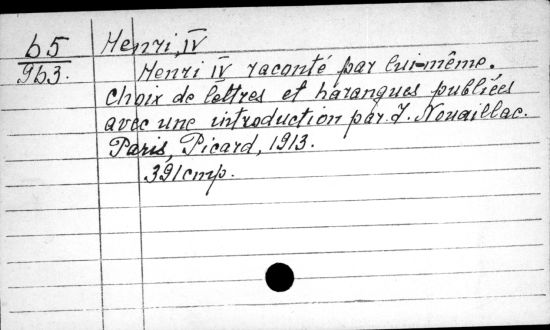 65 Henri, IV
963. Henri IV raconté par lui-même.
Choix de lettres et harangues publiées
avec une introduction par J. Nouaillac.
Paris, Picard, 1913.
391 стр.